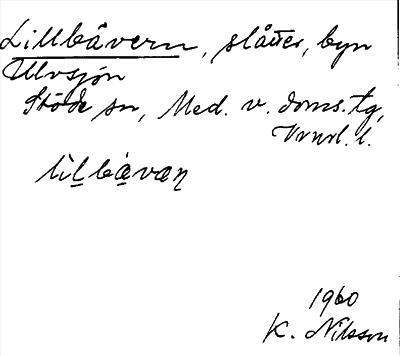 Lillbävern, slåtter, byn
Ulvsjön
Stöde sn, Med. v. doms. tg,
Vnrl. l.
lìl̠bä̀van
1960
K. Nilsson